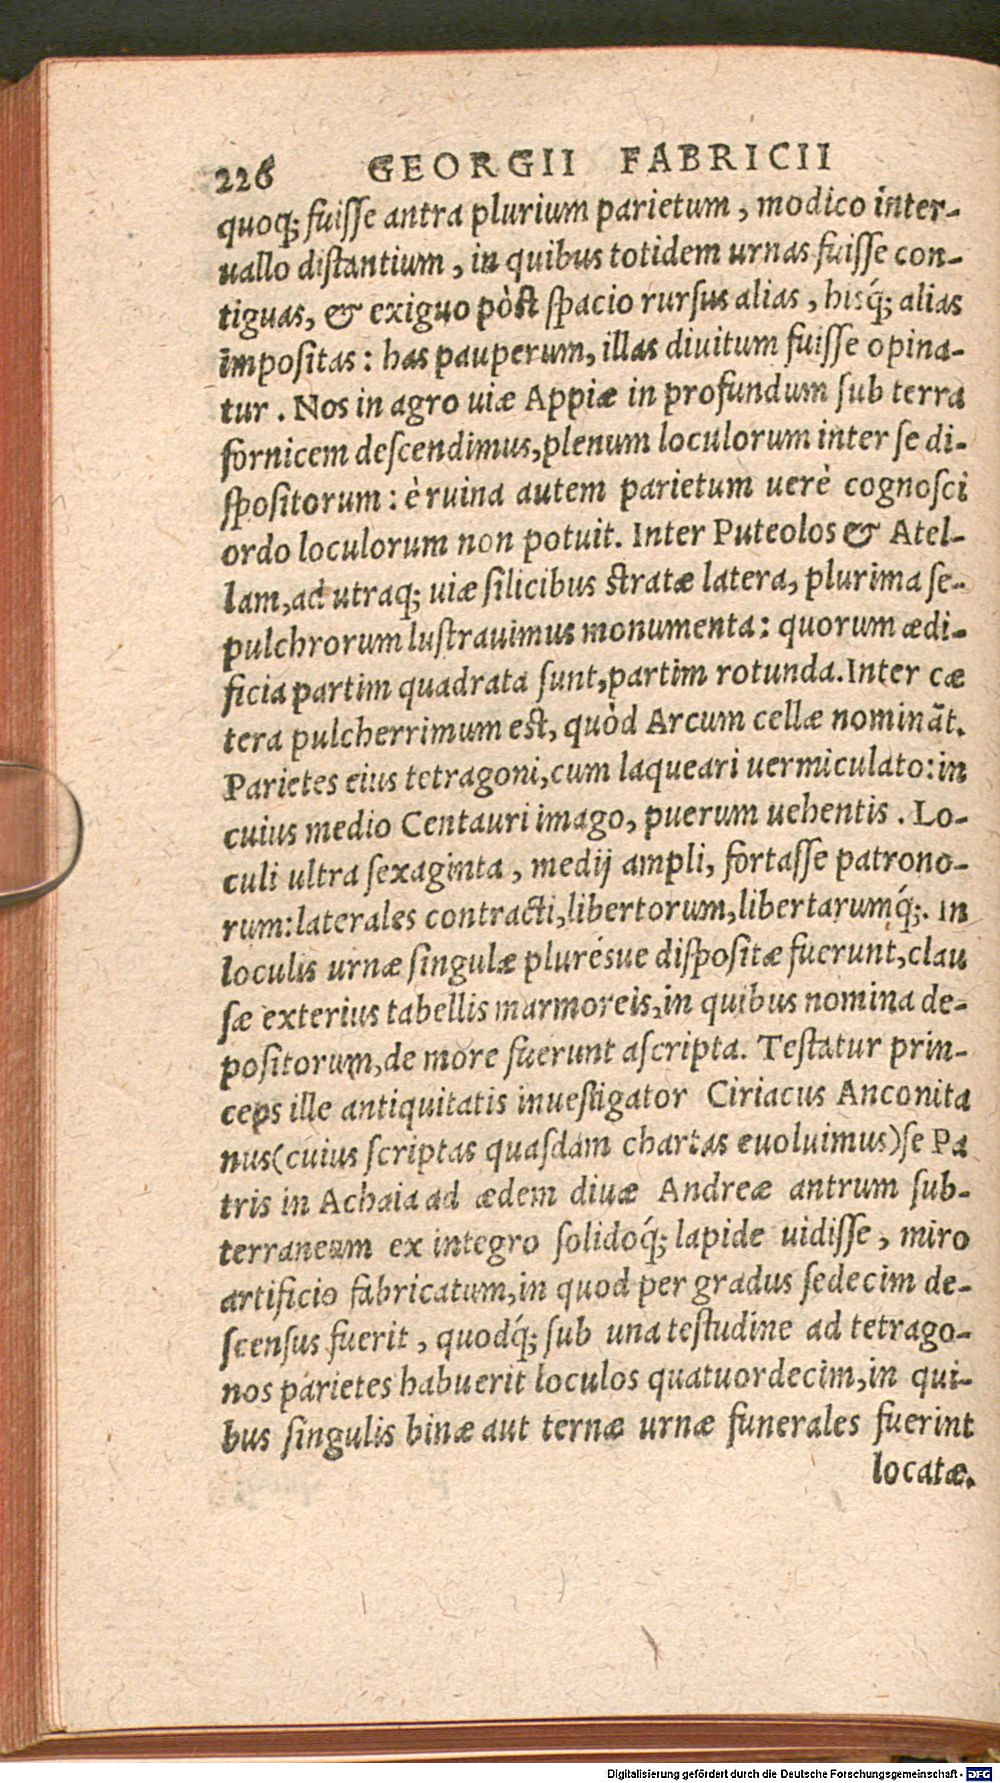 226 GEORGII FABRICII
quoq; fuiſſe antra plurium parietum, modico inter-
uallo diſtantium, in quibus totidem urnas fuiſſe con-
tiguas, & exiguo pòſt ſpacio rurſus alias, hisq́; alias
impoſitas: has pauperum, illas diuitum fuiſſe opina-
tur. Nos in agro uiæ Appiæ in profundum ſub terra
fornicem deſcendimus, plenum loculorum inter ſe di-
ſpoſitorum: è ruina autem parietum uerè cognoſci
ordo loculorum non potuit. Inter Puteolos & Atel-
lam, ad utraq; uiæ ſilicibus ſtratæ latera, plurima ſe-
pulchrorum luſtrauimus monumenta: quorum ædi-
ficia partim quadrata ſunt, partim rotunda. Inter cæ
tera pulcherrimum eſt, quòd Arcum cellæ nominãt.
Parietes eius tetragoni, cum laqueari uermiculato: in
cuius medio Centauri imago, puerum uehentis. Lo-
culi ultra ſexaginta, medij ampli, fortaſſe patrono-
rum: laterales contracti, libertorum, libertarumq́;. In
loculis urnæ ſingulæ pluréſue diſpoſitæ fuerunt, clau
ſæ exterius tabellis marmoreis, in quibus nomina de-
poſitorum, de more fuerunt aſcripta. Teſtatur prin-
ceps ille antiquitatis inueſtigator Ciriacus Anconita
nus (cuius ſcriptas quaſdam chartas euoluimus) ſe Pa
tris in Achaia ad ædem diuæ Andreæ antrum ſub-
terraneum ex integro ſolidoq́; lapide uidiſſe, miro
artificio fabricatum, in quod per gradus ſedecim de-
ſcenſus fuerit, quodq́; ſub una teſtudine ad tetrago-
nos parietes habuerit loculos quatuordecim, in qui-
bus ſingulis binæ aut ternæ urnæ funerales fuerint
locatæ.
Digitalisierung gefördert durch die Deutsche Forschungsgemeinschaft - DFG